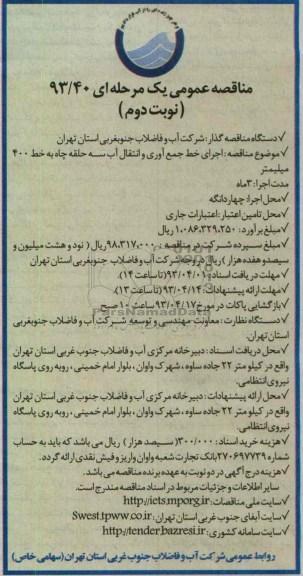 مناقصه عمومی یک مرحله ای ۹۳/۴۰
(نوبت دوم)
✓دستگاه مناقصه گذار: شرکت آب و فاضلاب جنوبغربی استان تهران
✓موضوع مناقصه: اجرای خط جمع آوری و انتقال آب سه حلقه چاه به خط ۴۰۰
میلیمتر
مدت اجرا: ۳ ماه
✓محل اجرا: چهاردانگه
✓محل تامین اعتبار: اعتبارات جاری
✓مبلغ برآورد: ۱،۰۸۶،۳۲۹،۲۵۰ ریال
✓مبلغ سپرده شرکت در مناقصه: ۹۸،۳۱۷،۰۰۰ ریال (نود و هشت میلیون و
سیصد و هفده هزار) ریال در وجه شرکت آب و فاضلاب جنوبغربی استان تهران
✓مهلت دریافت اسناد: ۹۳/۰۴/۰۱ (تا ساعت ۱۴)
✓مهلت ارائه پیشنهادات: ۹۳/۰۴/۱۴ (تا ساعت ۱۳)
✓بازگشایی پاکات در مورخ ۹۳/۰۴/۱۷ ساعت ۱۰ صبح
✓دستگاه نظارت: معاونت مهندسی و توسعه شرکت آب و فاضلاب جنوبغربی
استان تهران.
✓محل دریافت اسناد: دبیرخانه مرکزی آب و فاضلاب جنوب غربی استان تهران
واقع در کیلومتر ۲۲ جاده ساوه، شهرک واوان، بلوار امام خمینی، روبه روی پاسگاه
نیروی انتظامی.
✓محل ارائه پیشنهادات: دبیرخانه مرکزی آب و فاضلاب جنوب غربی استان تهران
واقع در کیلومتر ۲۲ جاده ساوه، شهرک واوان، بلوار امام خمینی، روبه روی پاسگاه
نیروی انتظامی.
✓هزینه خرید اسناد: ۳۰۰/۰۰۰ (سیصد هزار) ریال می باشد که باید به حساب
شماره ۲۷۰۶۹۷۷۳۹ بانک تجارت شعبه واوان واریز و فیش نقدی ارائه گردد.
✓هزینه درج آگهی در دو نوبت به عهده برنده مناقصه می باشد.
سایر اطلاعات و جزئیات مربوط در اسناد مناقصه مندرج است.
✓سایت ملی مناقصات: http://iets.mporg.ir
✓سایت آبفای جنوب غربی استان تهران: Swest.tpww.co.ir
✓سایت سامانه کشوری: http://tender.bazresi.ir
روابط عمومی شرکت آب و فاضلاب جنوب غربی استان تهران (سهامی خاص)